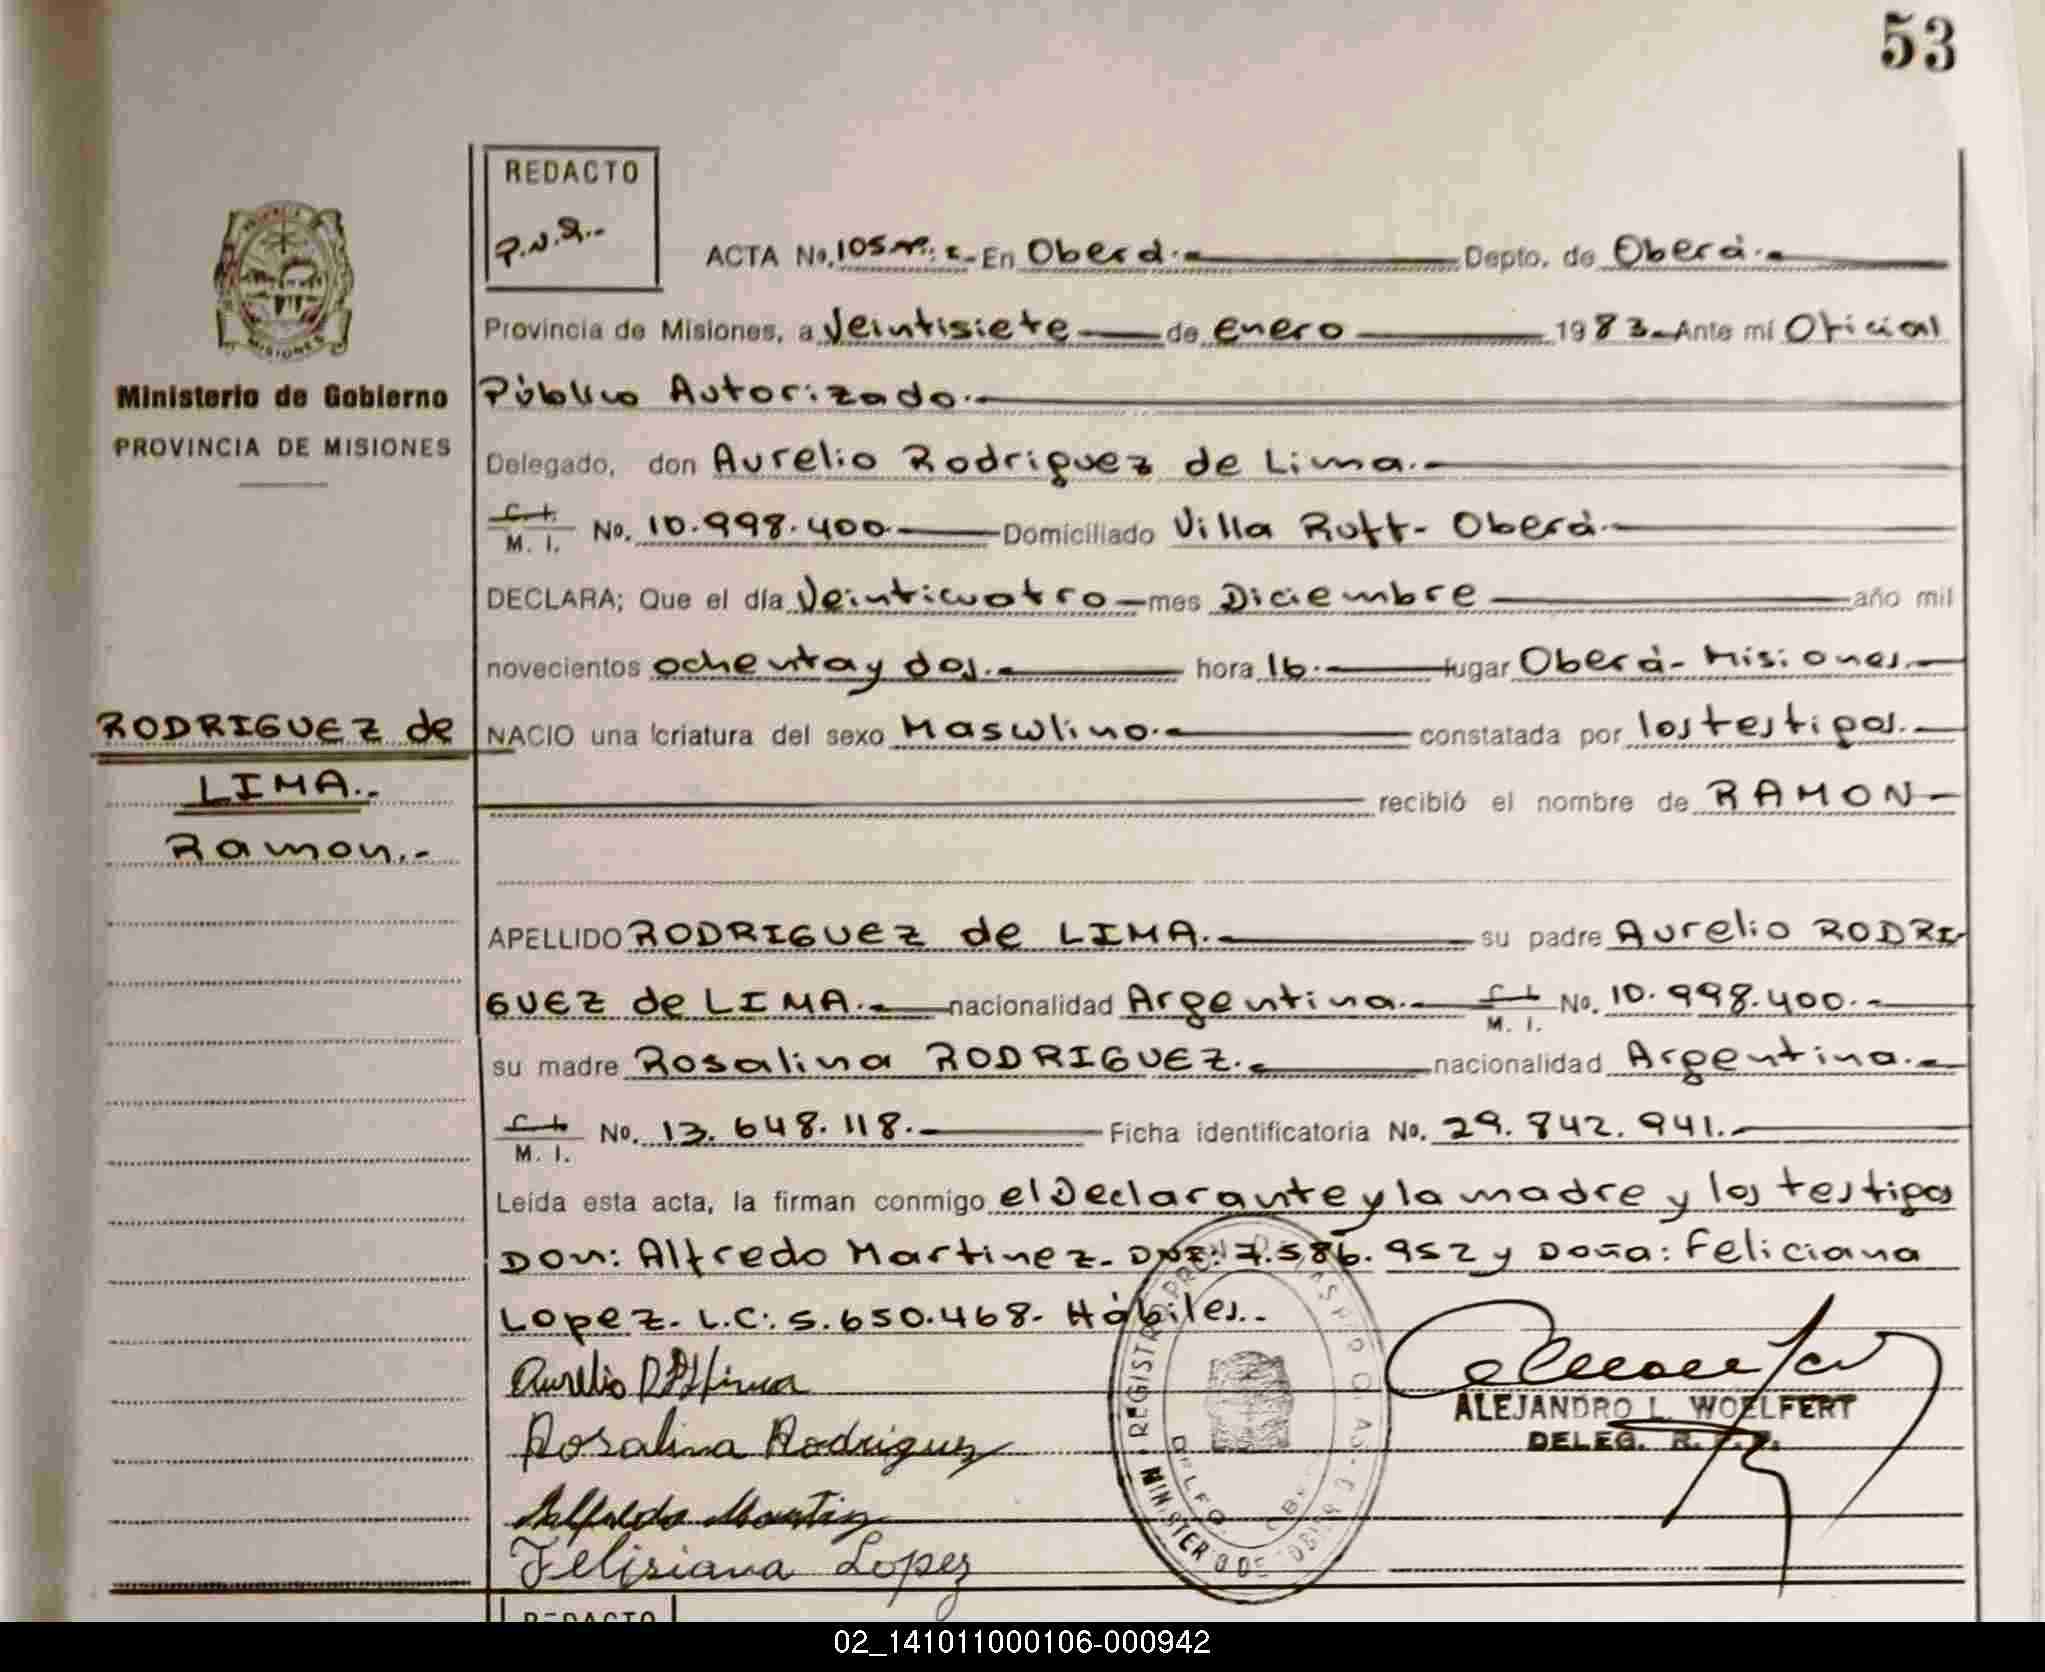 53
REDACTO
P.N.R.-
ACTA No. 105 En Oberá.- Depto. de Oberá.-
Provincia de Misiones, a Veintisiete de enero 1983.- Ante mí Oficial
Público Autorizado.-
Ministerio de Gobierno
PROVINCIA DE MISIONES
Delegado, don Aurelio Rodriguez de Lima.-
C. I. M. I. No. 10.998.400 Domiciliado Villa Ruff- Oberá-
DECLARA; Que el día Veinticuatro mes Diciembre año mil
novecientos ochenta y dos.- hora 16.- lugar Oberá- Misiones.-
RODRIGUEZ de
LIMA.-
Ramon.-
NACIO una criatura del sexo Masculino.- constatada por los testigos.-
recibió el nombre de RAMON-
APELLIDO RODRIGUEZ de LIMA.- su padre Aurelio RODRI-
GUEZ de LIMA.- nacionalidad Argentina.- C. I. M. I. No. 10.998.400.-
su madre Rosalina RODRIGUEZ.- nacionalidad Argentina.-
C. I. M. I. No. 13.648.118.- Ficha identificatoria No. 29.842.941.-
Leída esta acta, la firman conmigo el Declarante y la madre y los testigos
Don: Alfredo Martinez- DNI: 7.586.952 y Doña: Feliciana
Lopez- L.C: 5.650.468- Hábiles.-
Aurelio
Rosalina Rodriguez
Felisiana Lopez
ALEJANDRO L. WOELFERT
DELEG. R.
REGISTRO PROV. DE LAS PERSONAS
MINISTERIO DE GOBIERNO
REDACTO
02_141011000106-000942